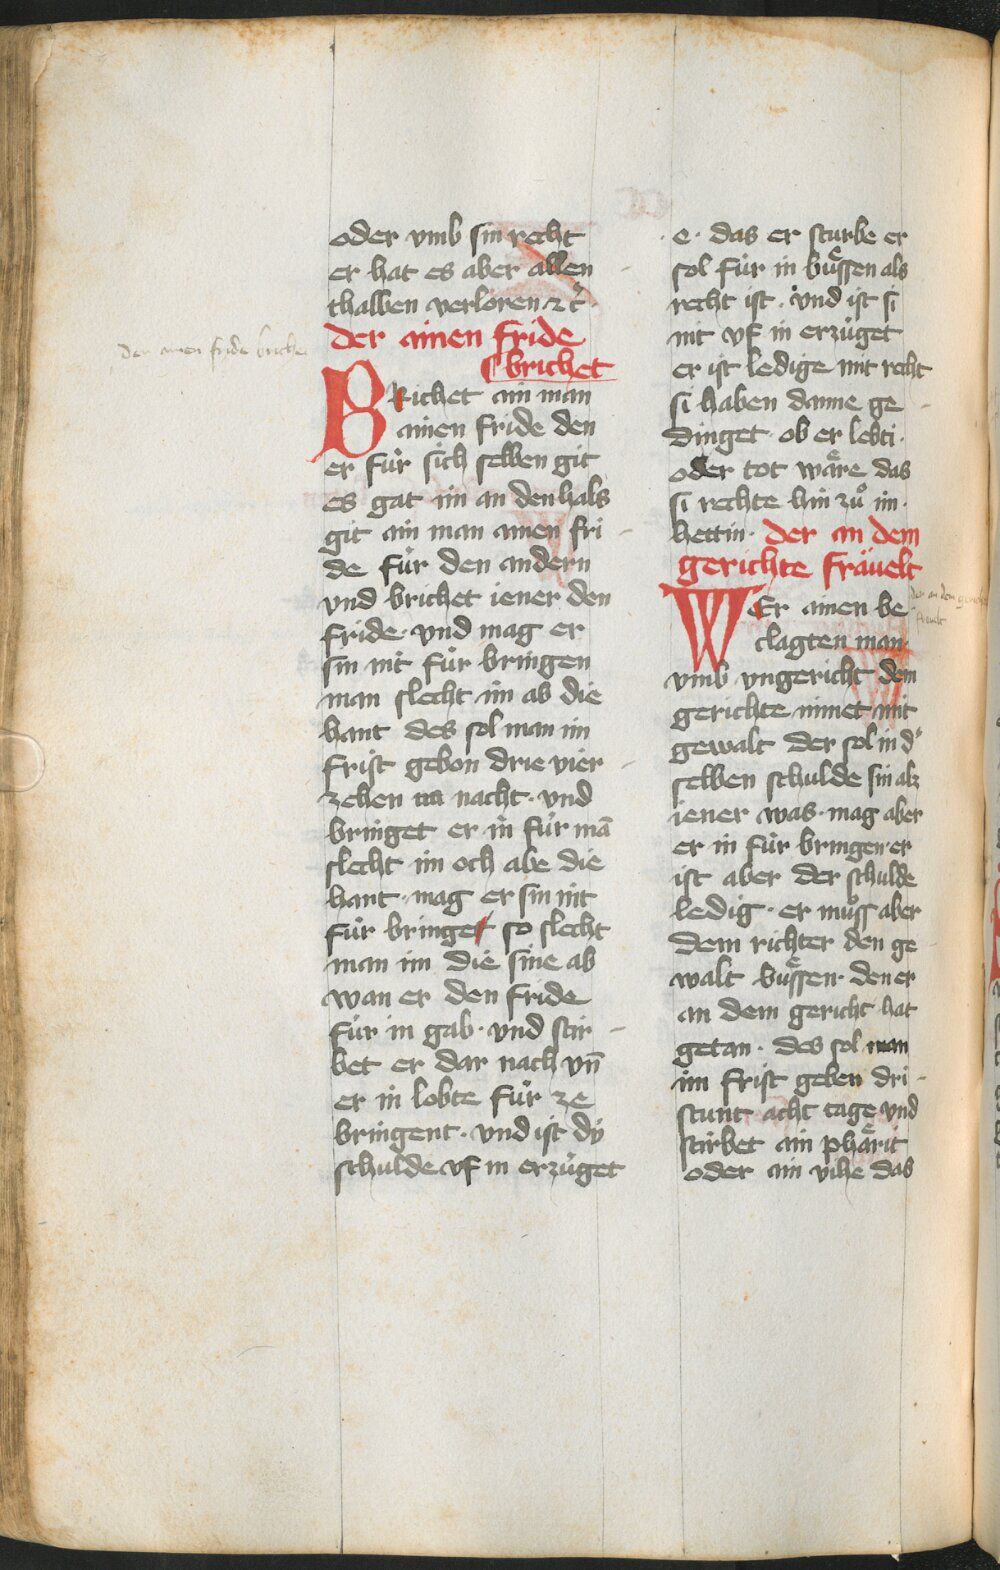 oder vmb sin recht
er hat es aber allen
thalben verloren ⁊ c̄
der ainen fride
brichet
BRichet ain man
ainen fride den
er für sich selben git
es gat im an den hals
git ain man ainen fri
de für den andern
vnd brichet iener den
fride · vnd mag er
sin nit für bringen
man slecht im ab die
hant des sol man im
frist gebon drie vier
zehen nacht · vnd
bringet er in für mā
slecht im och abe die
hant · mag er sin nit
für bringet so slecht
man im die sine ab
wan er den fride
für in gab · vnd stir
bet er dar nach vn̄
er in lobte für ze
bringent · vnd ist dÿ
schulde vf in erzüget
e · das er sturbe er
sol für in bůssen als
recht ist · vnd ist si
nit vf in erzüget
er ist ledige mit recht
si haben danne ge
dinget · ob er lebti ·
oder tot wäre das
si rechte hin zů im ·
hettin · der an dem
gerichte fräuelt
WEr ainen be
clagten man ·
vmb vngericht dem
gerichte nimet mit
gewalt der sol in d'
selben schulde sin alz
iener was · mag aber
er in für bringen · er
ist aber der schulde
ledig · er můss aber
dem richter den ge
walt bůssen · den er
an dem gericht hat
getan · des sol man
im frist geben dri
stunt acht tage vnd
stirbet ain phärit
oder ain vihe das
der ainen fride briche
der an dem gericht